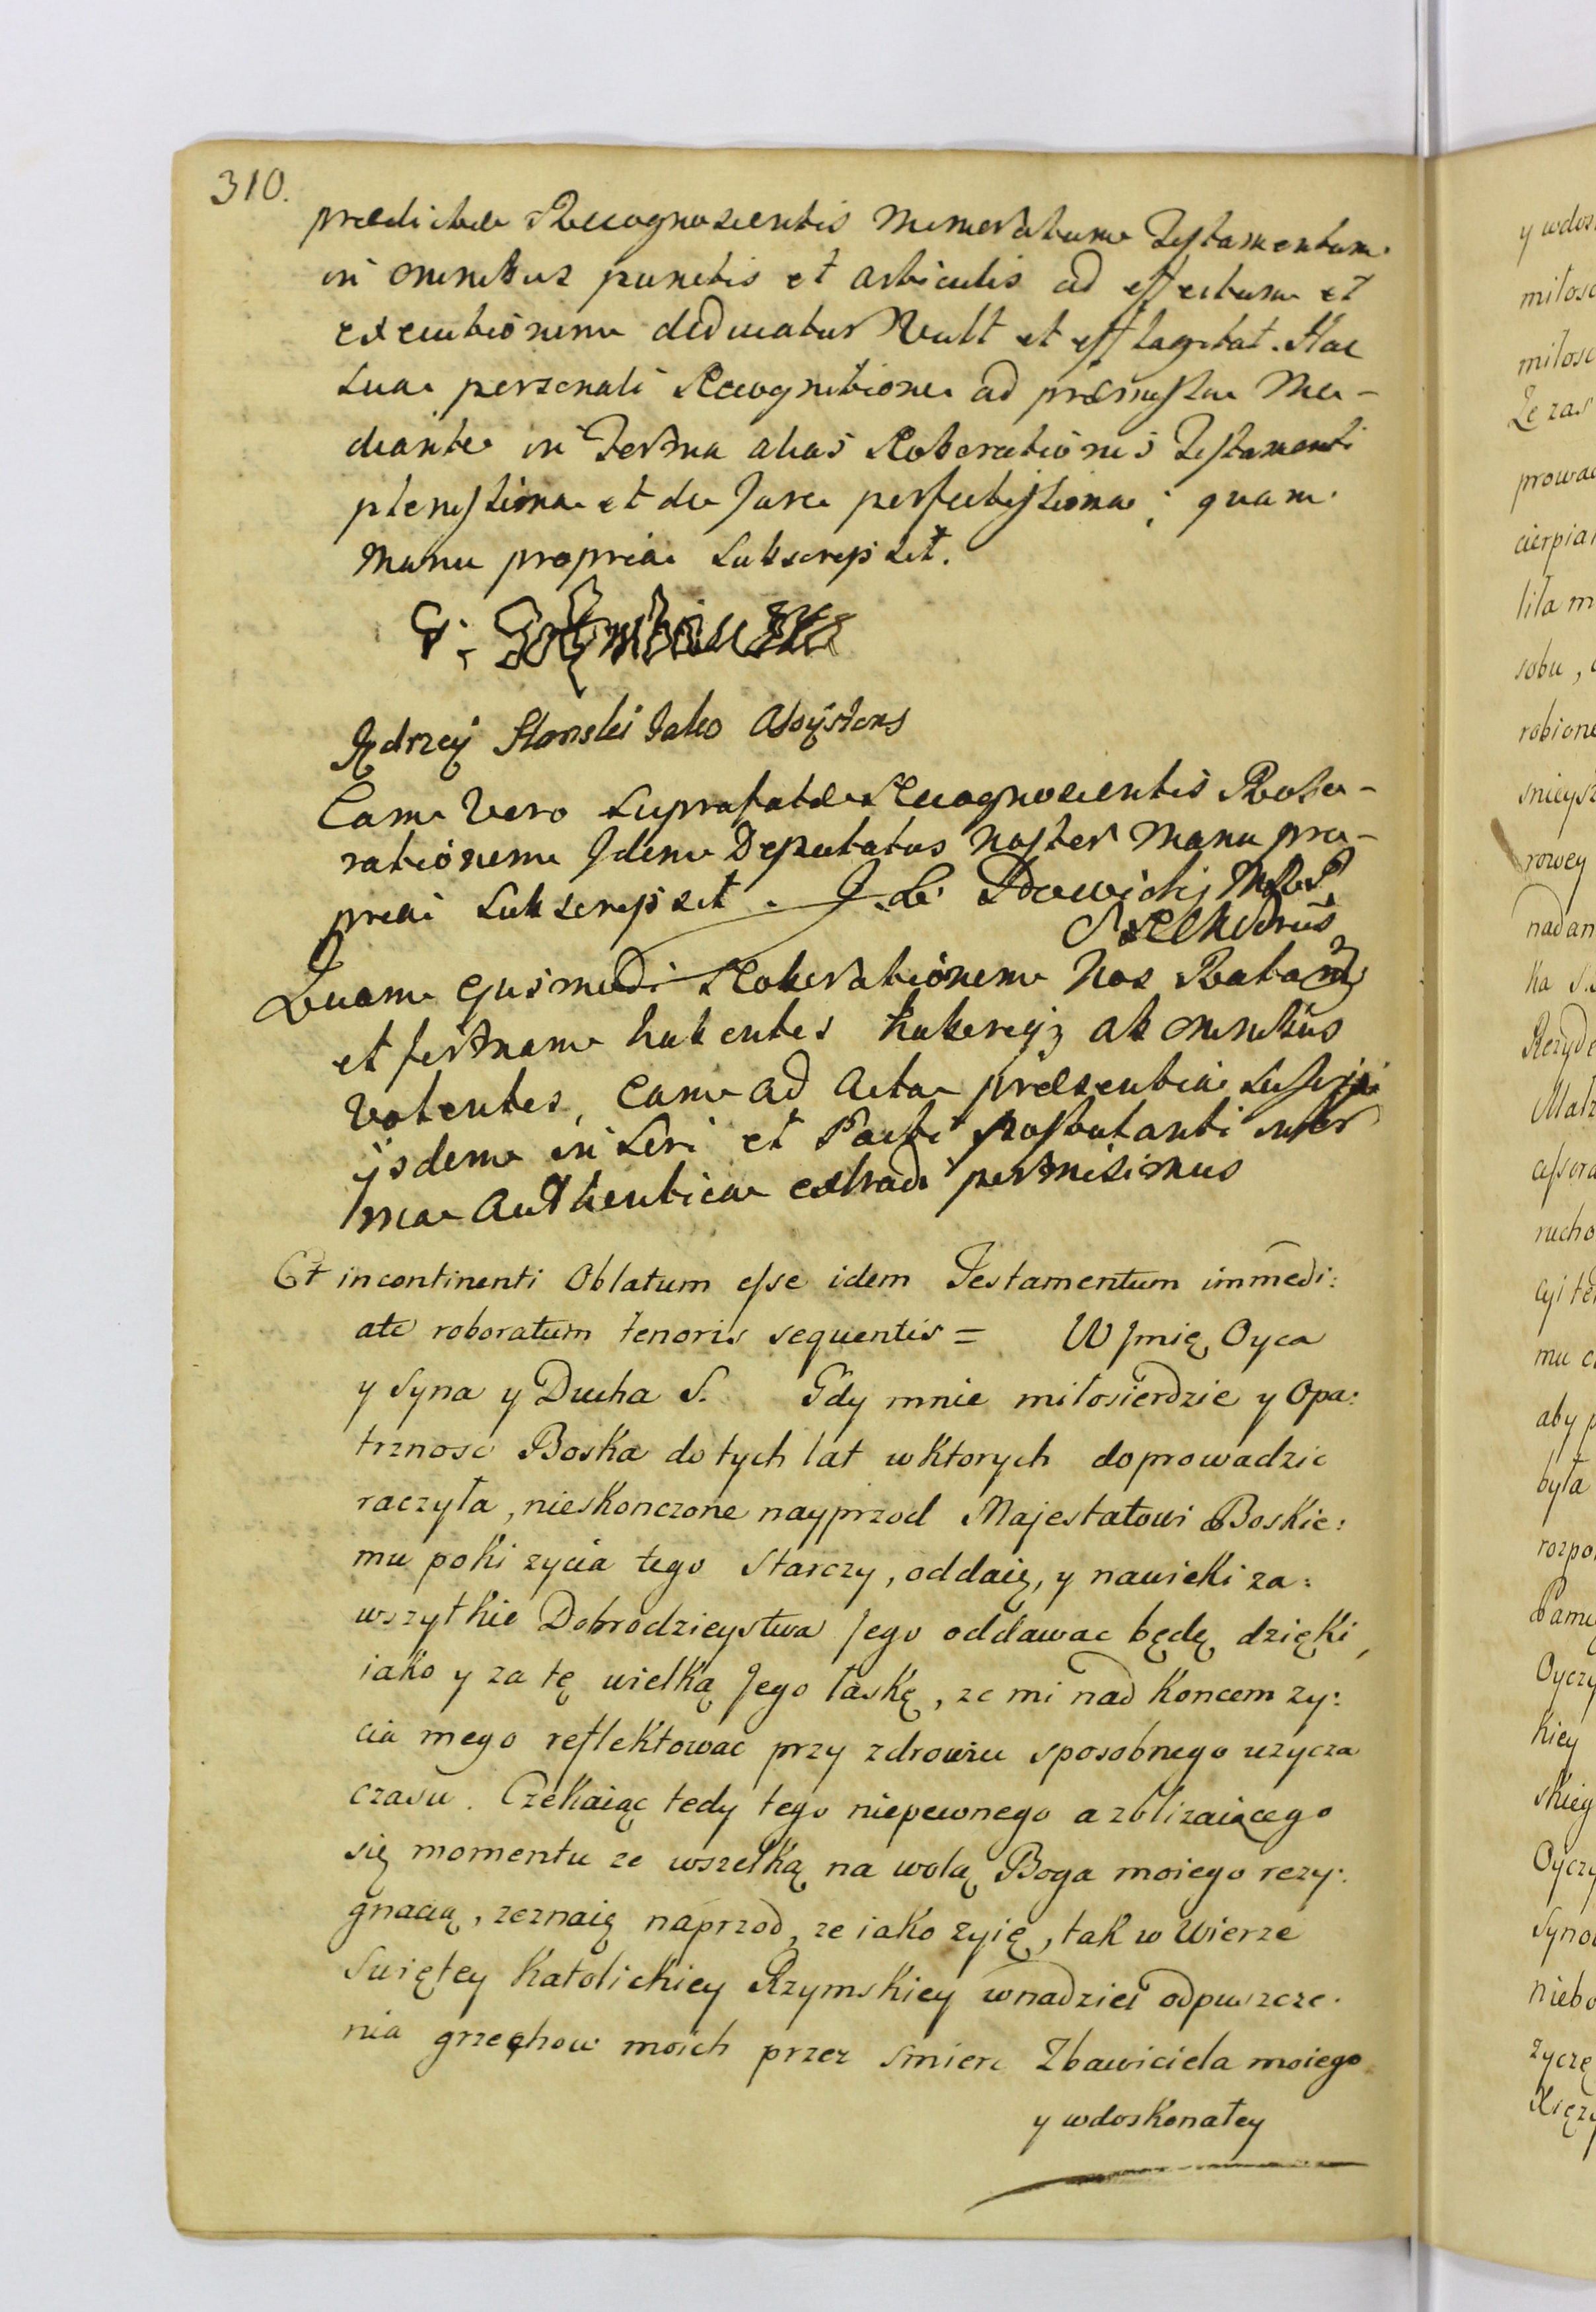 310.
praedictae Recognoscentis memoratum Testamentum
in omnibus punctis et articulis ad effectum et
executionem deducatur vult et efflagitat. Hac
sua personali Recognitione ad praemissa Me-
diante in Forma alias Roborationis Testamenti
plenissima et de Jure perfectissima; quam
manu propria subscripsit.
Jędrzey Słonski Jako Assystens
Eam vero suprafatae Recognoscentis Robo-
rationem Idem Deputatus noster manu pro-
pria subscripsit.
Quam ejusmodi Roborationem Nos Ratam
et firmam habentes haberiq; ab omnibus
volentes, eam ad Acta praesentia suscipi
ijsdem inseri et Parti postulanti in for
ma authentica extradi permisimus
Et incontinenti Oblatum esse idem Testamentum immedi:
ate roboratum tenoris sequentis = W Jmię Oyca
y Syna y Ducha S. Gdy mnie miłosierdzie y Opa:
trznosc Boska do tych lat w ktorych doprowadzic
raczyła, nieskonczone nayprzod Majestatowi Boskie:
mu poki zycia tego starczy, oddaię, y nawieki za:
wszytkie Dobrodzieystwa Jego oddawac będę dzięki,
iako y za tę wielką Jego łaskę, ze mi nad koncem zy:
cia mego reflektowac przy zdrowiu sposobnego uzycza
czasu. Czekaiąc tedy tego niepewnego a zblizaiącego
się momentu ze wszelką na wolą Boga moiego rezy:
gnacią, zeznaię naprzod, ze iako zyię, tak w Wierze
Swiętey Katolickiey Rzymskiey w nadziei odpuszcze:
nia grzechow moich przez smierc Zbawiciela moiego
y wdoskonałey
y wdos
miłosc
miłosc
Ze zas